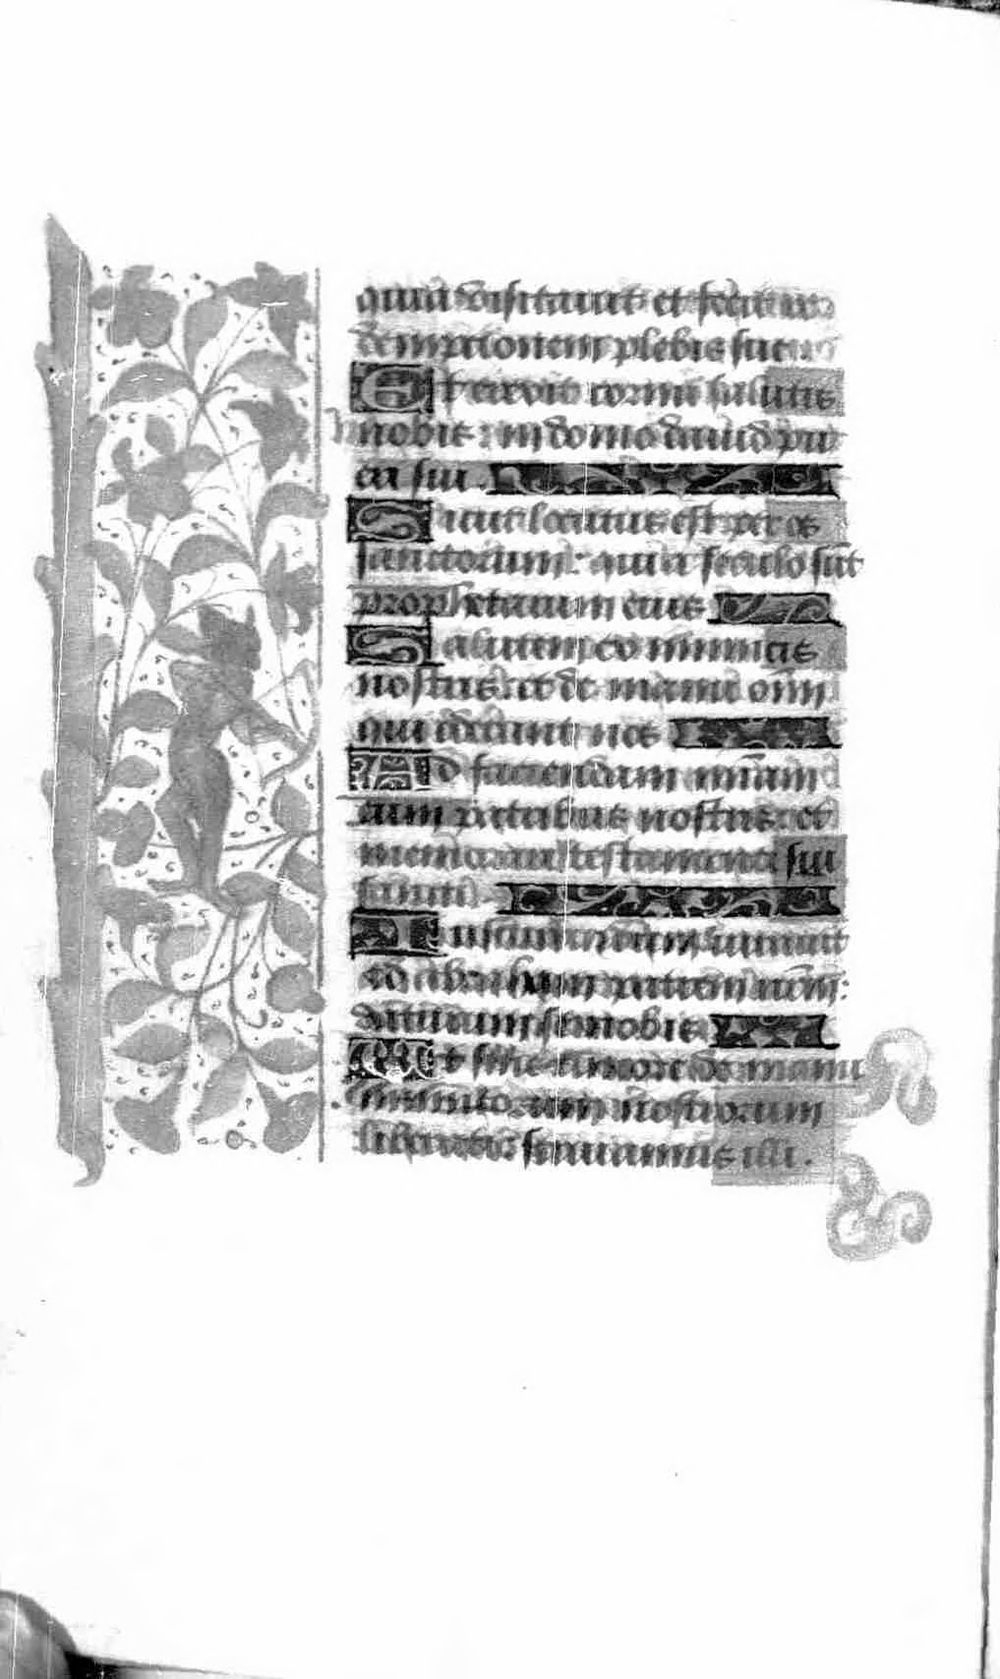 quia visitauit et fecit re
demptionem plebis sue
Et erexit cornu salutis
nobis: in domo dauid pu
eri sui.
Sicut locutus est per os
sanctorum: qui a seculo sūt
prophetarum eius
Salutem ex inimicis
nostris: et de manu oīm
qui oderunt nos
Ad faciendam mīam
cum patribus nostris: et
memorari testamenti sui
sancti.
Iusiurandum quod iurauit
ad abraham patrem nrm̄:
daturum se nobis
Ut sine timore de manu
inimicorum nostrorum
liberati: seruiamus illi.